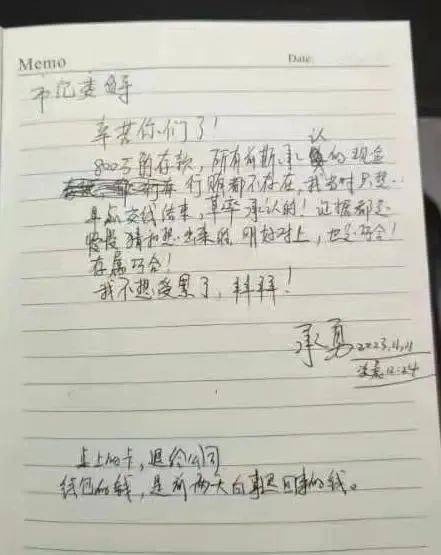 Memo Date:
市纪委领导
辛苦你们了!
800万的存款,所有前期承认的现金
行贿都不存在,我当时只想
早点交待结束,草率承认的!证据都是
慢慢猜和想出来的,刚好对上,也是巧合!
存属巧合!
我不想受累了,拜拜!
承勇 2023.11.11
凌晨12:24
桌上的卡,退给公司
钱包的钱,是前两天白事回来的钱。